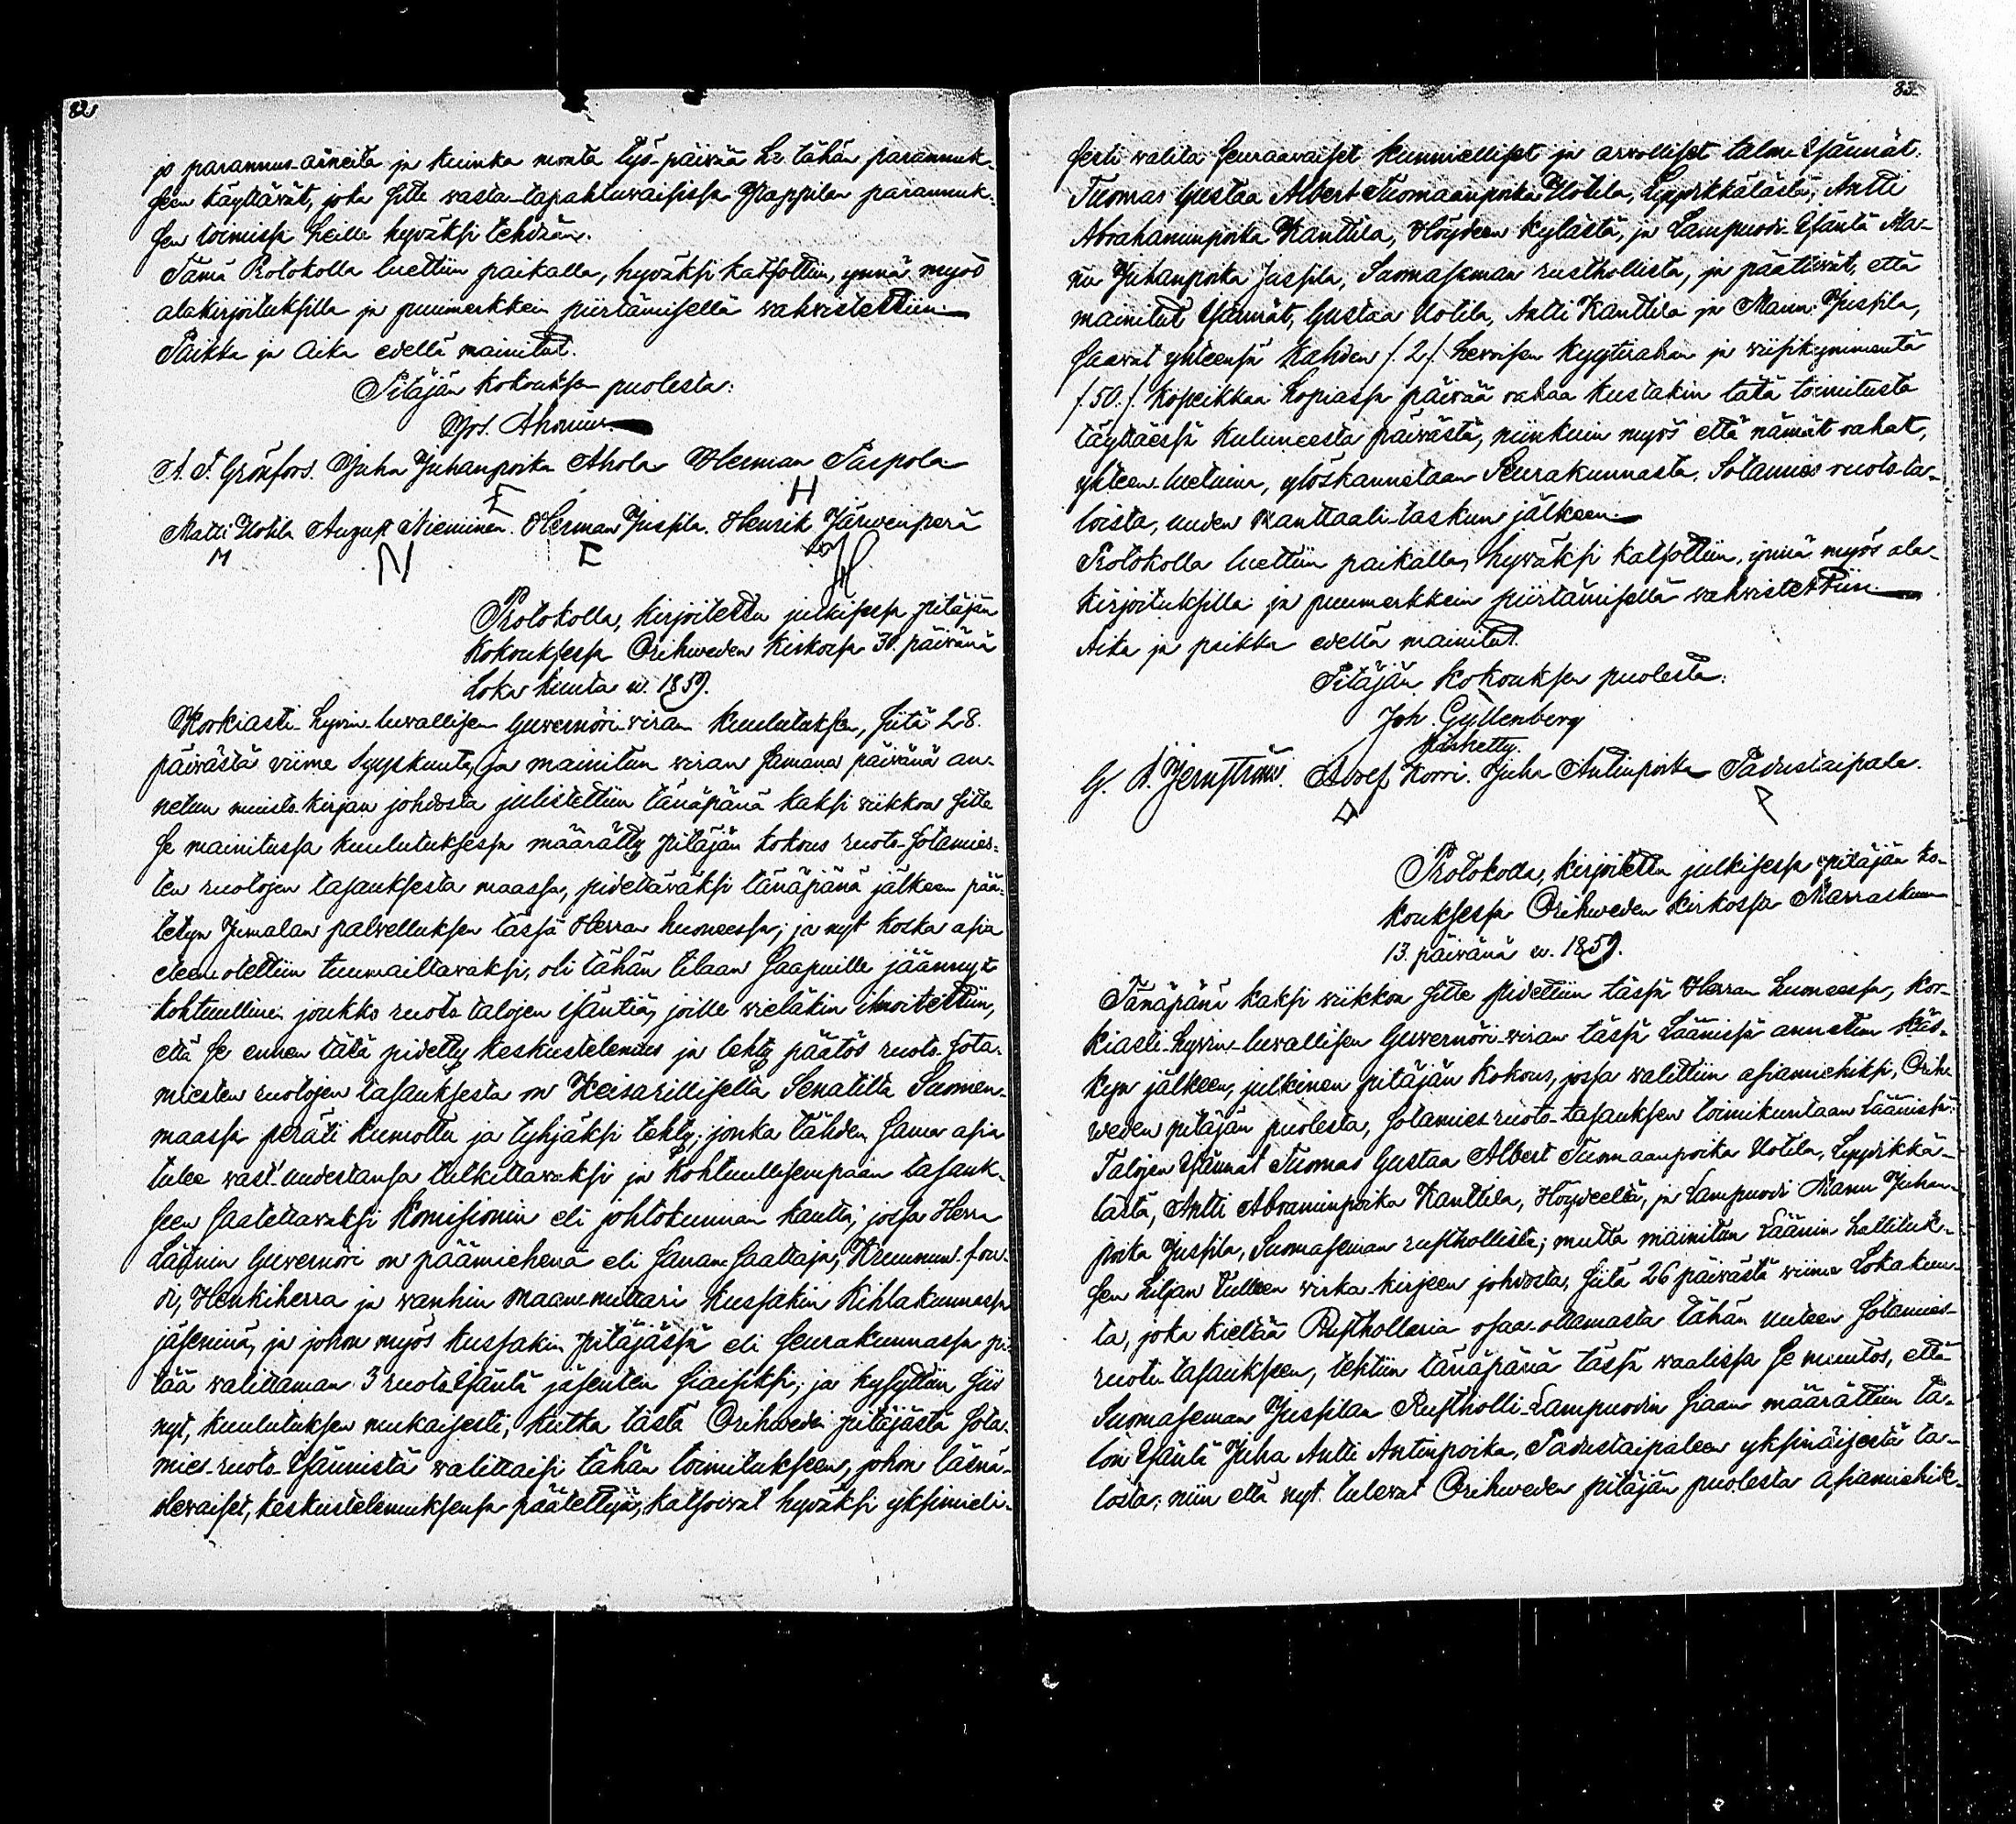 82.
jo parannus-aineita ja kuinka monta työ-päivää he tähän parannuk-
seen käyttävät, joka sitte vasta-tapahtuvaisissa Pappilan parannuk-
sen toimissa heille hyväksi tehdään.
Tämä Protokolla luettiin paikalla, hyväksi katsottiin, ynnä myös
alakirjoituksilla ja puumerkkein piirtämisellä wahvistettiin.
Paikka ja Aika edellä mainitut.
Pitäjän kokouksen puolesta:
Jos. Ahonius.
A. F. Grönfors. Juha Juhanpoika Ahola Herman Parpola
Matti Uotila August Nieminen. Herman Jussila. Henrik Järwenperä
Protokolla, kirjoitettu julkisessa pitäjän
kokouksessa Orihweden kirkossa 30. päivänä
Loka kuuta w. 1859.
Korkiasti-hyvin-luvallisen Guvernöri-viran kuulutuksen, siitä 28.
päivästä viime Syyskuuta, ja mainitun viran samana päivänä an-
netun muisto-kirjan johdosta julistettiin tänäpänä kaksi wiikkoa sitte
se mainitussa kuulutuksessa määrätty pitäjän kokous ruoto-sotamies-
ten ruotojen tasauksesta maassa, pidettäväksi tänäpänä jälkeen pää-
tetyn Jumalan palvelluksen tässä Herran huoneessa; ja nyt koska asia
eteen otettiin tuumailtavaksi, oli tähän tilaan saapuille jäännyt
kohtuullinen joukko ruoto talojen isäntiä, joille vieläkin ilmoitettiin,
että se ennen tätä pidetty keskustelemus ja tehty päätös ruoto-sota-
miesten ruotojen tasauksesta on Keisarilliselta Senatilta Suomen-
maassa peräti kumottu ja tyhjäksi tehty; jonka tähden sama asia
tulee vast'uudestansa tutkittavaksi ja kohtuullisempaan tasauk-
seen saatettavaksi Komisionin eli johtokunnan kautta, jossa Herra
Läänin Guvernöri on päämiehenä eli sanan saattaja, Kruunun-fou-
di, Henkiherra ja vanhin maan-mittari kussakin Kihlakunnassa
jäseninä, ja johon myös kussakin pitäjässä eli seurakunnassa pi-
tää valittaman 3 ruoto Isäntä jäsenten siaisiksi; ja kysyttiin siis
nyt, kuulutuksen mukaisesti, kutka tästä Orihweden pitäjästä sota-
mies-ruoto-Isännistä walittaisi tähän toimitukseen, johon läsnä-
olevaiset, keskustelemuksensa päätettyä, katsoivat hyväksi yksimieli-
83.
sesti valita seuraavaiset kunnialliset ja arvolliset talon Isännät:
Tuomas Gustaa Albert Tuomaanpoika Uotila, Lyydikkälästä, Antti
Abrahaminpoika Kanttila, Höydeen kylästä, ja Lampuodi-Isäntä Ma-
nu Juhanpoika Jussila, Suomaseman rusthollista, ja päättivät, että
mainitut Isännät, Gustaa Uotila, Antti Kanttila ja Manu Jussila,
saavat yhteensä kahden /: 2 :/ hevoisen kyytirahan ja viisikymmentä
/: 50. :/ kopeikkaa hopiassa päivää rahaa kustakin tätä toimitusta
täyttäessä kuluneesta päivästä, niinkuin myös että nämät rahat,
yhteen-luettuina, ylöskannetaan Seurakunnasta, Sotamies ruoto-ta-
loista, uuden Manttaali-laskun jälkeen.
Protokolla luettiin paikalla, hyväksi katsottiin, ynnä myös ala-
kirjoituksilla ja puumerkkein piirtämisellä wahvistettiin.
Aika ja paikka edellä mainitut.
Pitäjän kokouksen puolesta:
Joh. Gyllenberg
G. A. Jernström. Korri. Juha Antinpoika Padustaipale.
Protokolla, kirjoitettu julkisessa pitäjän ko-
kouksessa Orihweden kirkossa Marraskuun
13. päivänä w. 1859.
Tänäpänä kaksi wiikkoa sitte pidettiin tässä Herran huoneessa, kor-
kiasti-hyvin-luvallisen Guvernöri-viran tässä Läänissä annetun käs-
kyn jälkeen, julkinen pitäjän kokous, jossa valittiin asiamiehiksi, Orih-
weden pitäjän puolesta, sotamies-ruoto-tasauksen toimikuntaan Läänissä:
Talojen Isännät Tuomas Gustaa Albert Tuomaanpoika Uotila, Lyydikkä-
lästä, Antti Abraminpoika Kanttila, Höydeeltä, ja Lampuodi Manu Juhan-
poika Jussila, Suomaseman rusthollista; mutta mainitun Läänin hallituk-
sen siljan tulleen virka-kirjeen johdosta, siitä 26 päivästä viime Lokakuu-
ta, joka kieltää Rusthollaria osaa-ottamasta tähän uuteen sotamies-
ruoto-tasaukseen, tehtiin tänäpänä tässä waalissa se muutos, että
Suomaseman Jussilan Rustholli-Lampuodin siaan määrättiin ta-
lon Isäntä Juha Antti Antinpoika, Padustaipaleen yksinäisestä ta-
losta; niin että nyt tulevat Orihweden pitäjän puolesta asiamiehik-